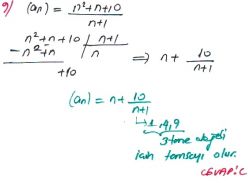 9) (an) = n²+n+10 / n+1
n²+n+10 | n+1
- n²+n | n ⇒ n + 10/n+1
+10
(an) = n + 10/n+1
↳ 1,4,9
3 tane değeri
için tamsayı olur.
CEVAP: C